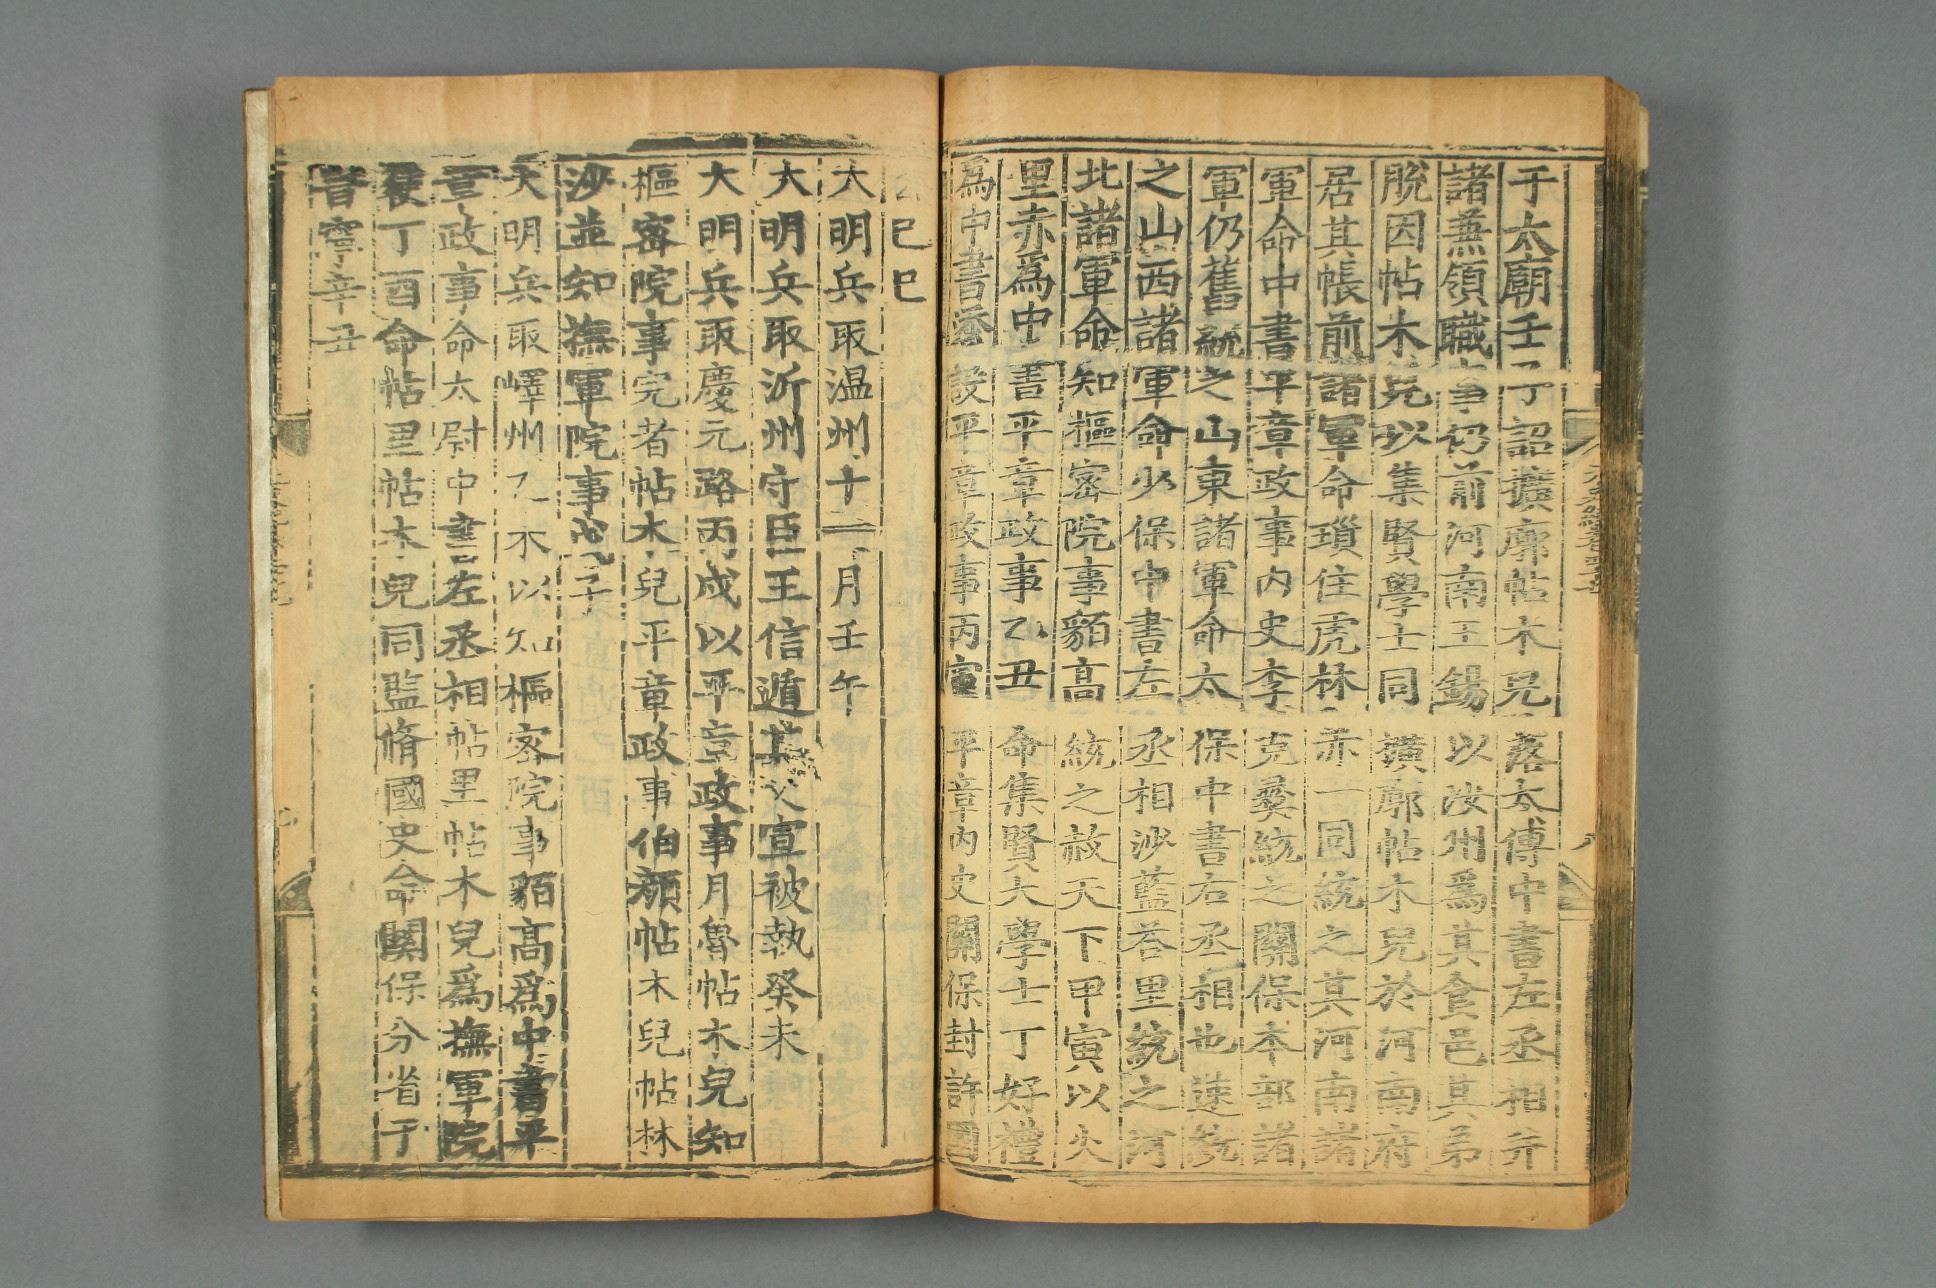 于太廟壬子丁詔擴廓帖木兒落太傅中書左丞相并
諸兼領職事仍前河南王錫以汝州爲其食邑其弟
脫因帖木兒以集賢學士同擴廓帖木兒於河南府
居其帳前諸軍命瑣住虎林赤一同統之其河南諸
軍命中書平章政事内史李克彝統之關保本部諸
軍仍舊統之山東諸軍命太保中書右丞相也速統
之山西諸軍命少保中書左丞相沙藍荅里統之河
北諸軍命知樞密院事貊高統之赦天下甲寅以火
里赤爲中書平章政事乙丑命集賢大學士丁好禮
爲中書添設平章政事丙寅平章内史關保封許國
公己巳
大明兵取温州十一月壬午
大明兵取沂州守臣王信遁其父宣被執癸未
大明兵取慶元路丙戌以平章政事月魯帖木兒知
樞密院事完者帖木兒平章政事伯顔帖木兒帖林
沙並知撫軍院事戊子
大明兵取嶧州乙未以知樞密院事貊高爲中書平
章政事命太尉中書左丞相帖里帖木兒爲撫軍院
使丁酉命帖里帖木兒同監脩國史命關保分省于
晉寧辛丑